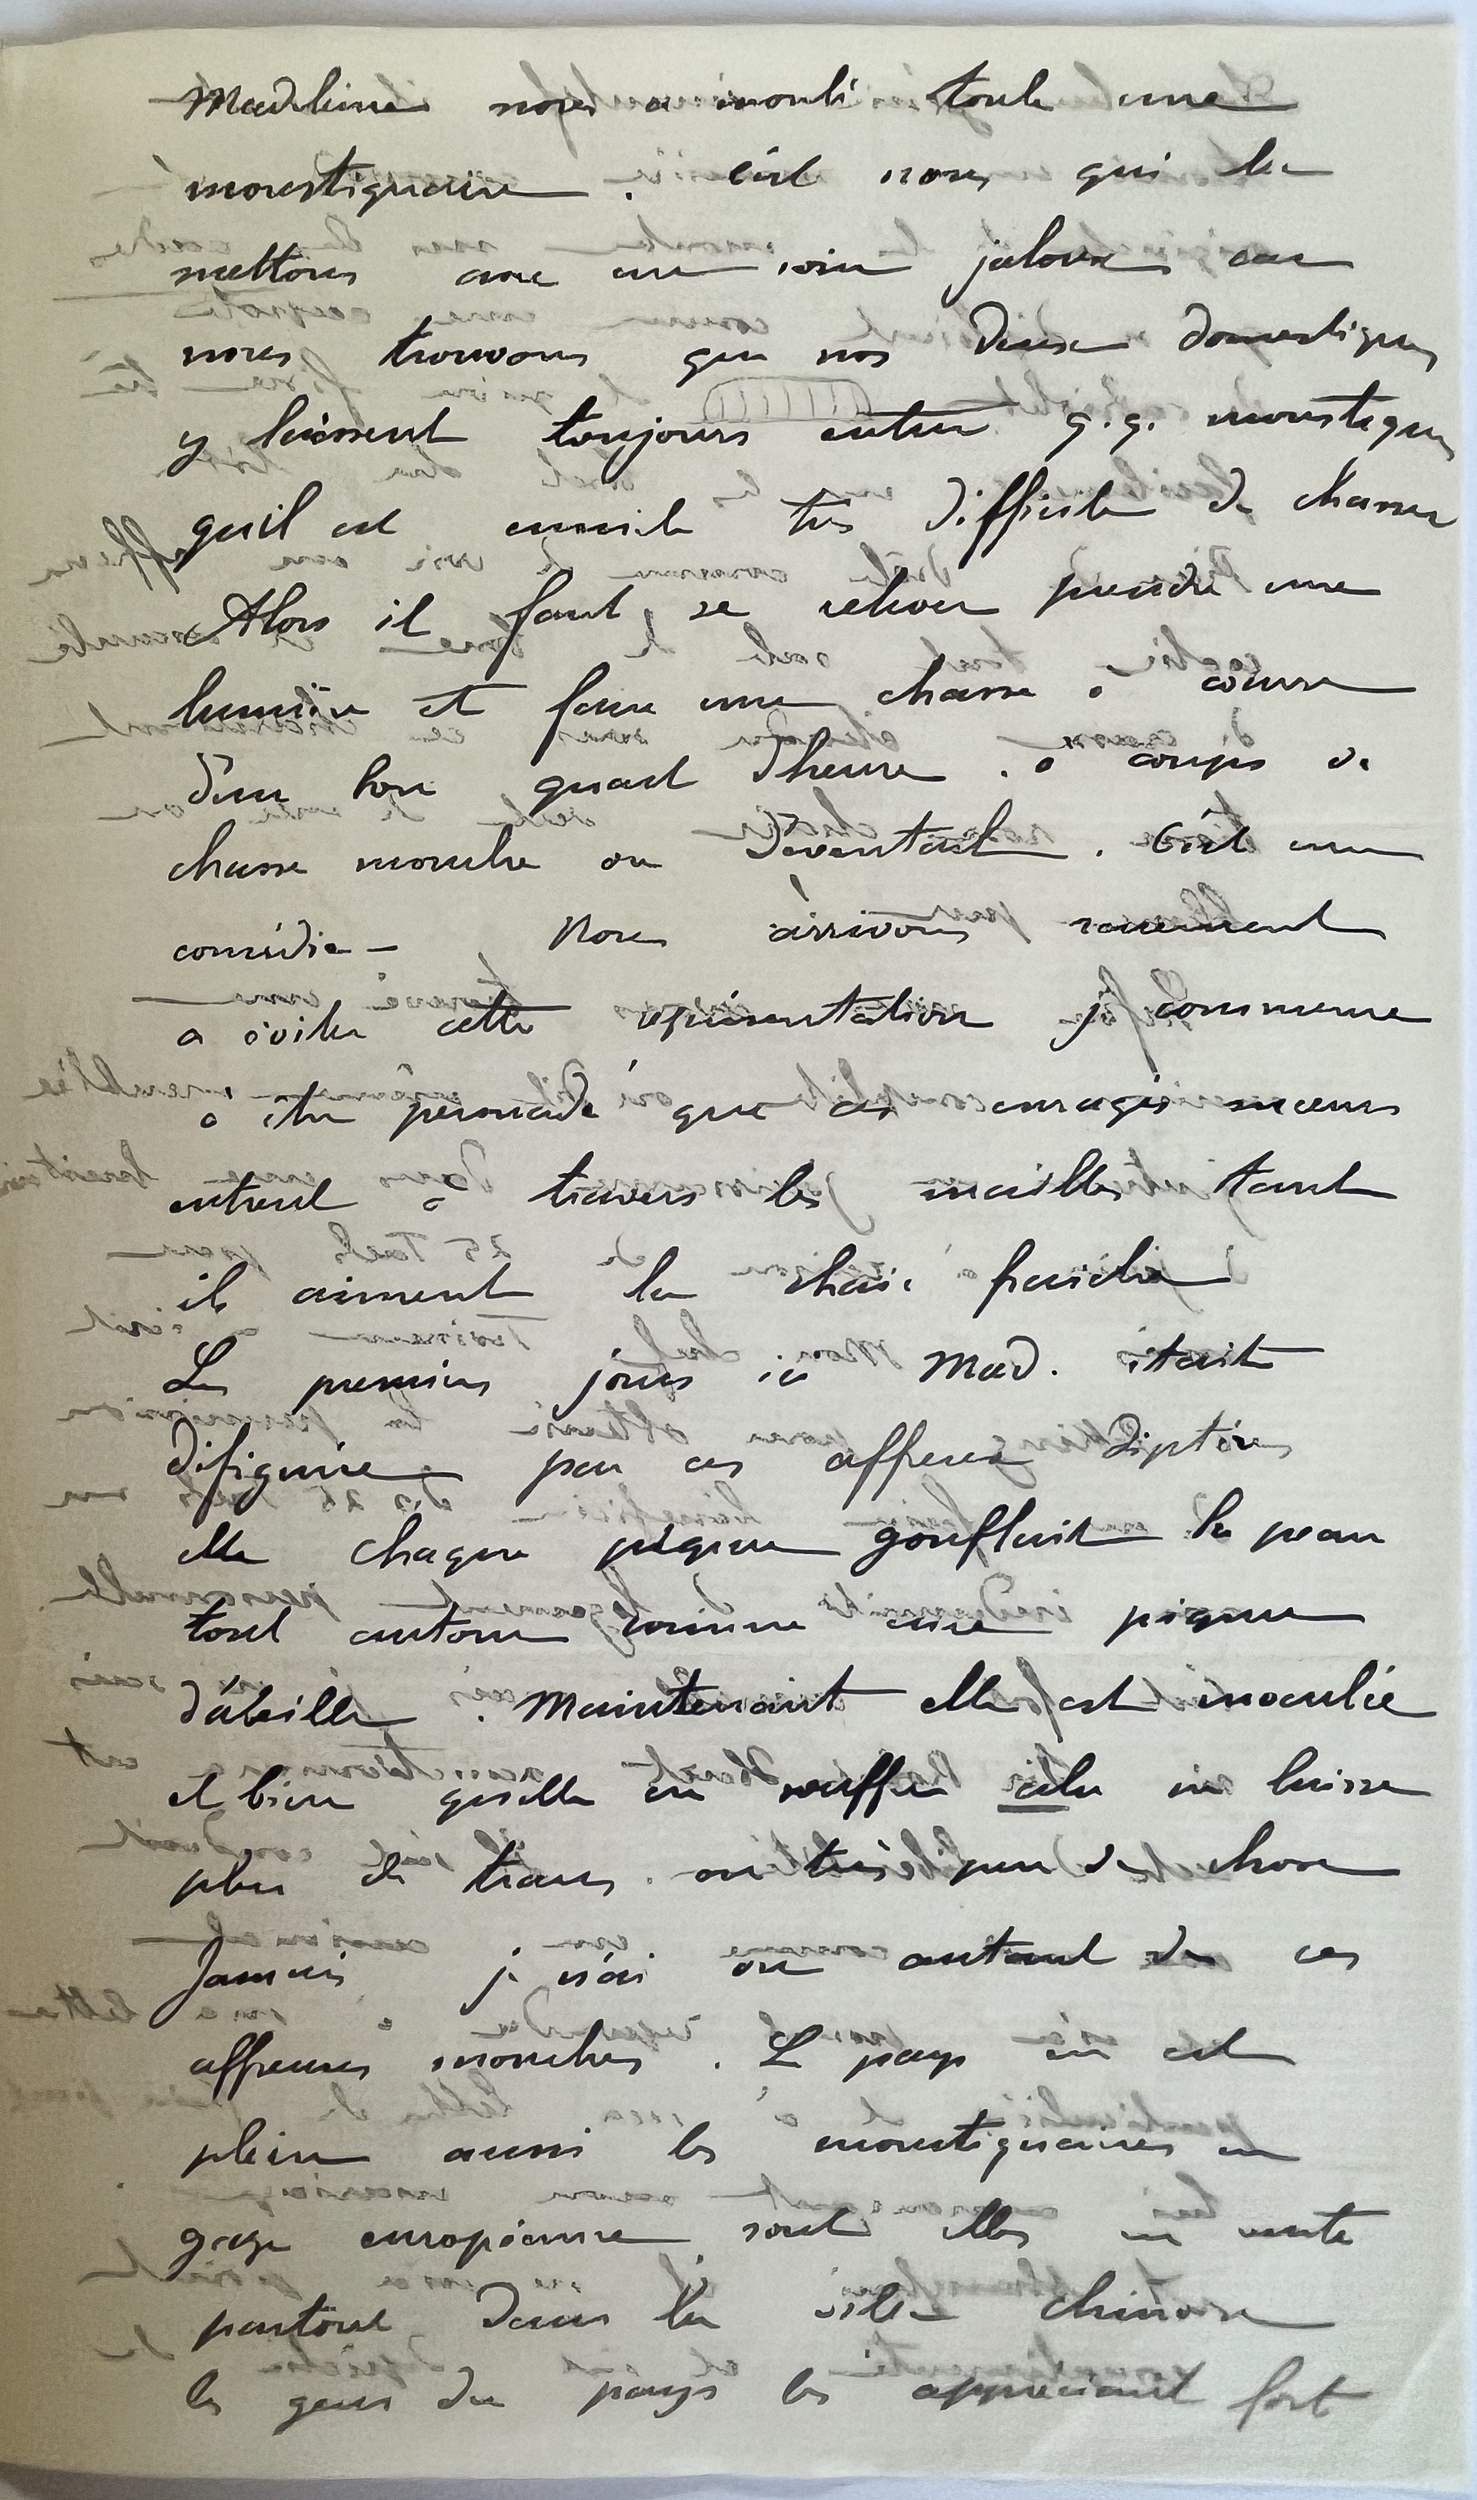 Madeleine nous a monté toute une
moustiquaire. C'est nous qui la
mettons avec un soin jaloux car
nous trouvons que nos deux domestiques
y laissent toujours entrer q.q. moustiques
qu'il est ensuite très difficile de chasser
Alors il faut se relever prendre une
lumière et faire une chasse à courre
d'un bon quart d'heure. à coups de
chasse mouche ou d'éventail. C'est une
comédie – Nous arrivons rarement
a éviter cette représentation je commence
à être persuadé que ces enragés
entrent à travers les mailles tant
ils aiment la chair fraiche
Les premiers jours ici Mad. était
défigurée par ces affreux diptères
elle chaque piqure gonflait la peau
tout autour comme une piqure
d'abeille. Maintenant elle est inoculée
et bien qu'elle en souffre cela ne laisse
plus de traces. ou très peu de chose
Jamais je n'ai vu autant de ces
affreuses mouches. Le pays en est
plein aussi les moustiquaires en
gaze européenne sont elles en vente
partout dans la ville chinoise
les gens du pays les apprécient fort